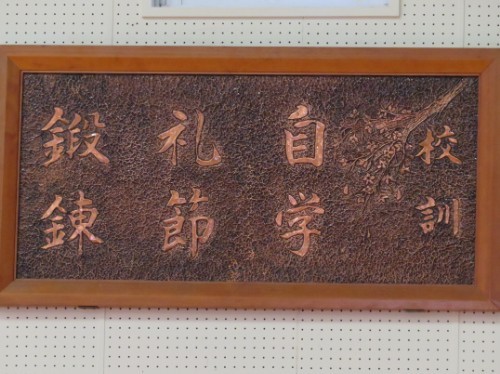 校訓
自学
礼節
鍛錬